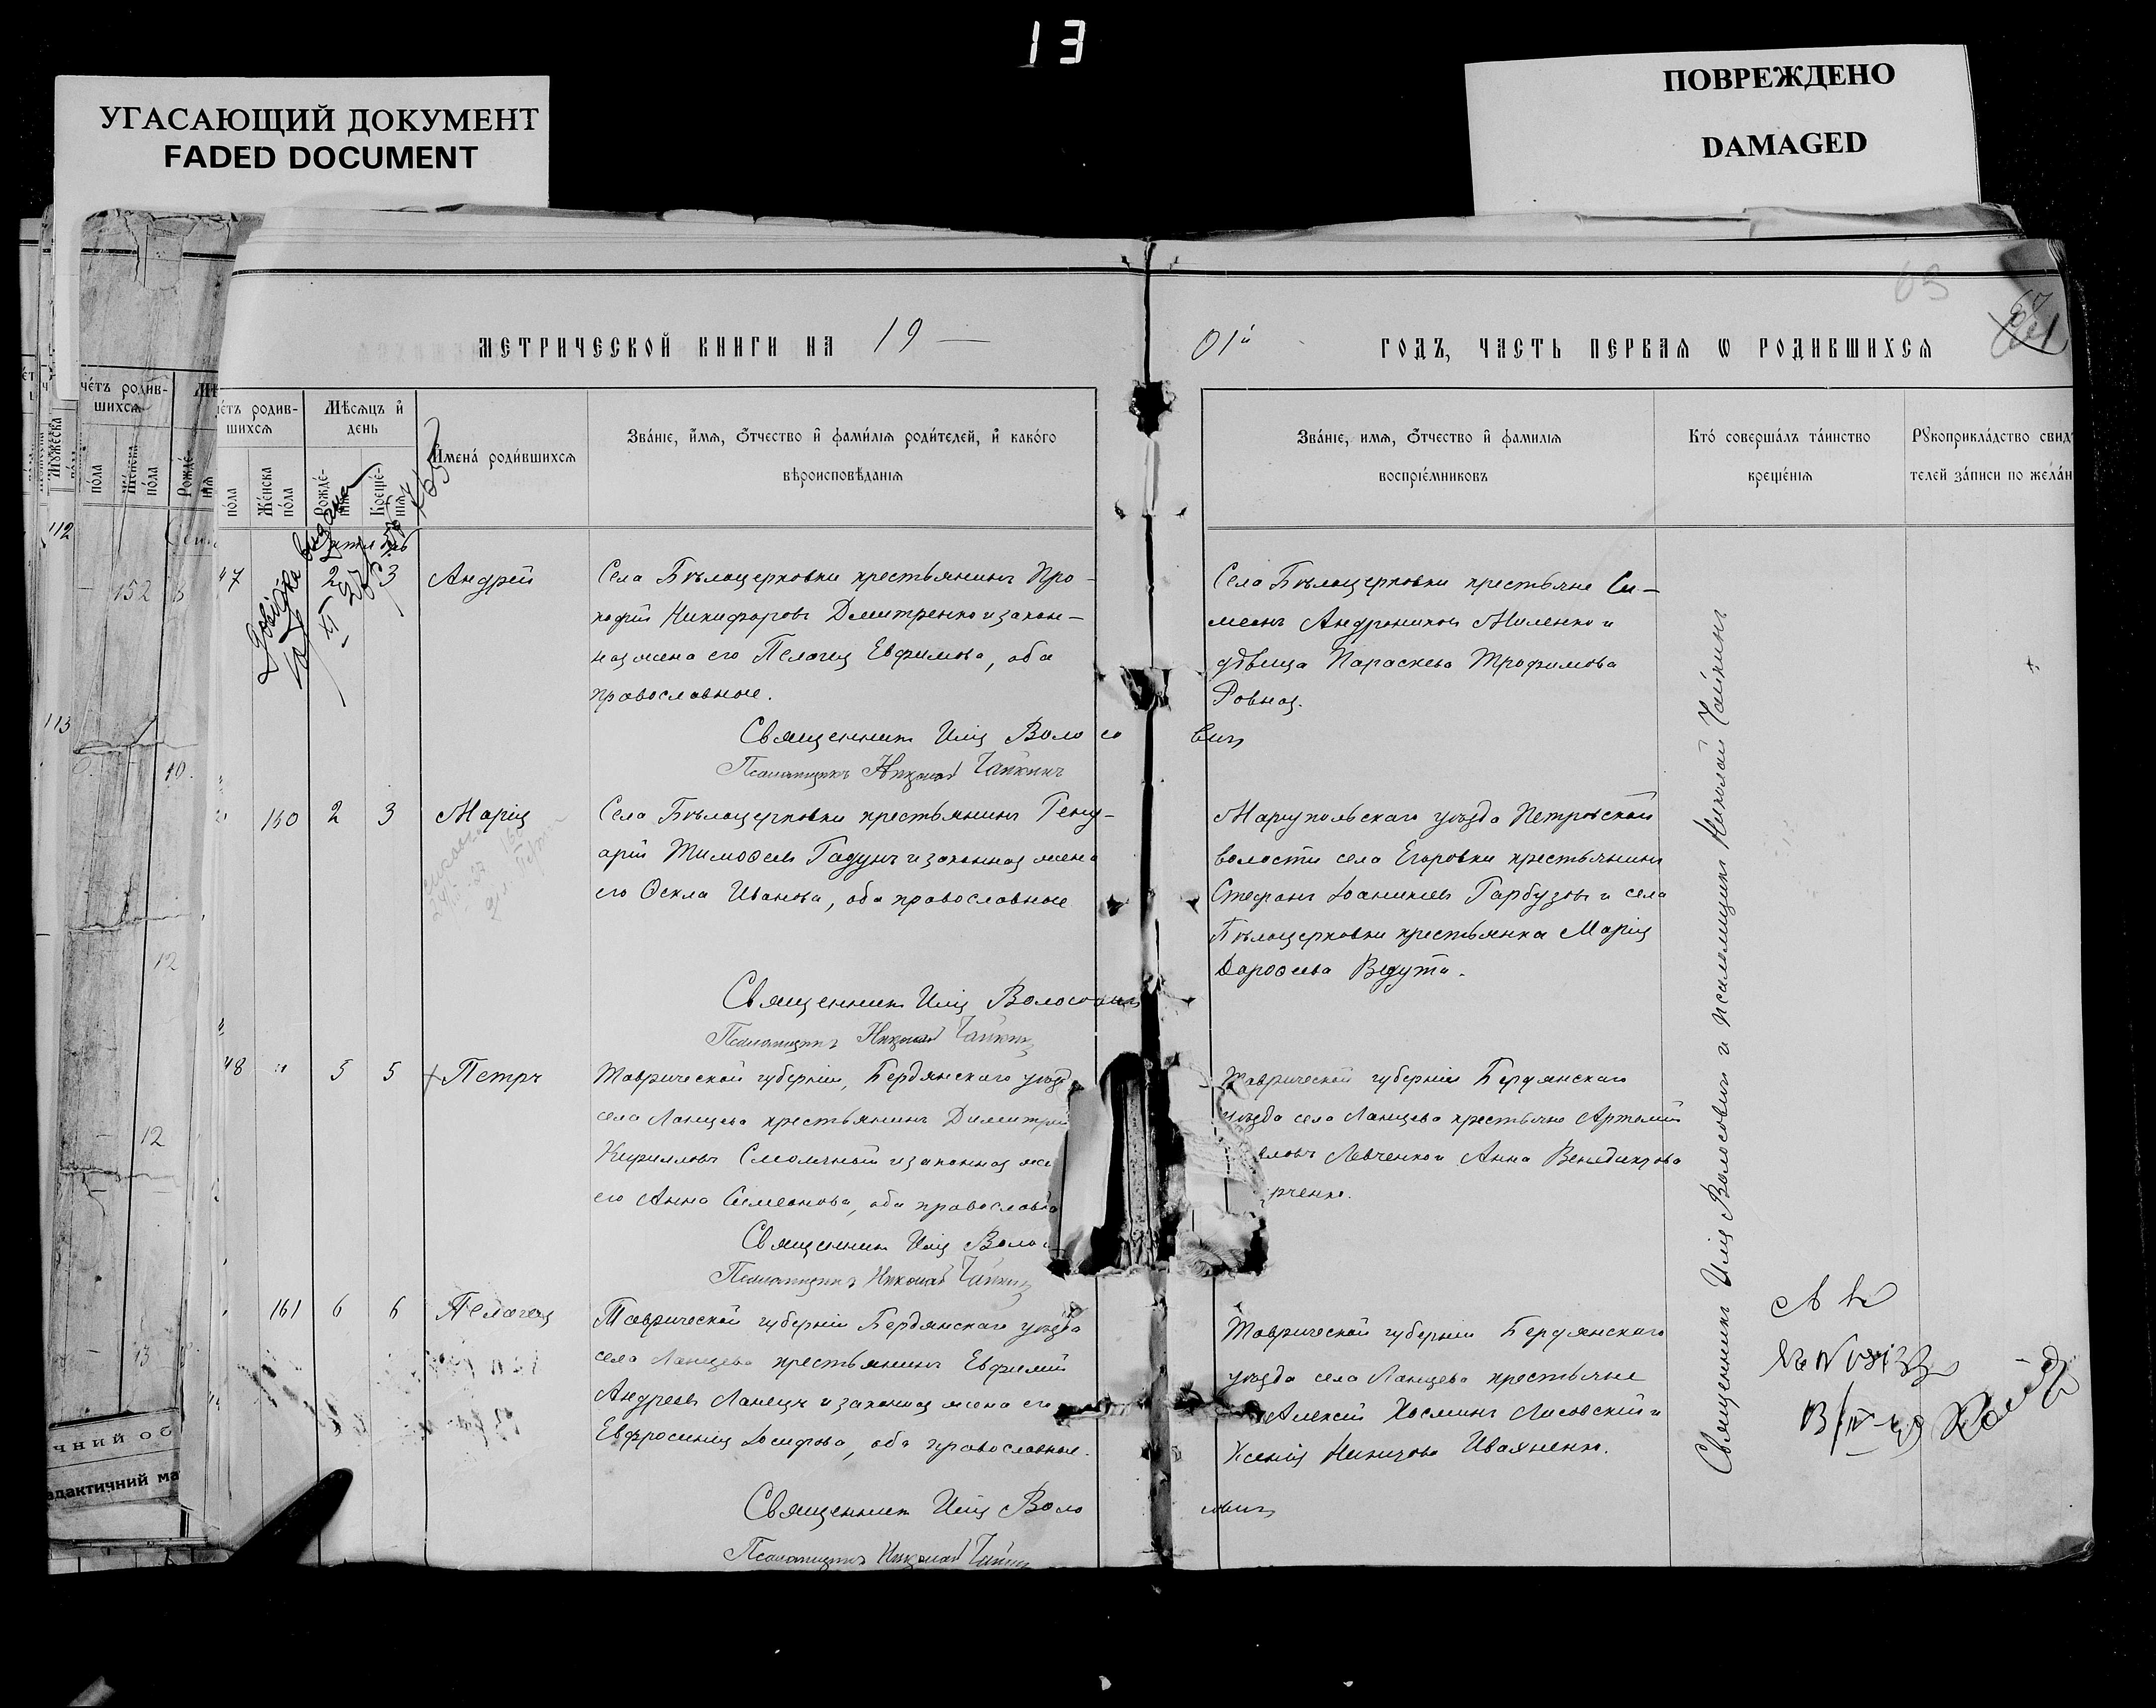 13
УГАСАЮЩИЙ ДОКУМЕНТ
FADED DOCUMENT
ПОВРЕЖДЕНО
DAMAGED
МЕТРИЧЕСКОЙ КНИГИ НА 19 —
01й ГОДЪ, ЧАСТЬ ПЕРВАЯ Ѡ РОДИВШИХСЯ
Мѣсяцъ и
день
Имена родившихся
Званіе, имя, отчество и фамилія родителей, и какого
вѣроисповѣданія
Женска
пола
Рожде-
нія
Креще-
нія
Званіе, имя, отчество и фамилія
воспріемниковъ
Кто совершалъ таинство
крещенія
Рукоприкладство свид
телей записи по желан
47 2 3 Андрей
Села Бѣлоцерковки крестьянинъ Про-
кофій Никифоровъ Димитренко и закон-
ная жена его Пелагея Евфимова, оба
православные.
Священникъ Илія Волосо
вичъ
Псаломщикъ Николай Чайкинъ
Села Бѣлоцерковки крестьяне Си-
меонъ Андрониковъ Миленко и
дѣвица Параскева Трофимова
Ровная.
160 2 3 Марія
Села Бѣлоцерковки крестьянинъ Гену-
арій Тимоѳеевъ Гадунъ и законная жена
его Ѳекла Иванова, оба православные
Священникъ Илія Волосовичъ
Псаломщикъ Николай Чайкинъ
Маріупольскаго уѣзда Петровской
волости села Егоровки крестьянинъ
Стефанъ Іоанникіевъ Гарбузовъ и села
Бѣлоцерковки крестьянка Марія
Дороѳеева Ведута.
48 " 5 5 Петръ
Таврической губерніи, Бердянскаго уѣзд
села Ланцева крестьянинъ Димитрій
Кирилловъ Смоляный и законная же
его Анна Симеонова, оба православн
Священникъ Илія Воло
Псаломщикъ Николай Чайкинъ
Таврической губерніи Бердянскаго
уѣзда села Ланцева крестьяне Артемій
вловъ Левченко и Анна Венедиктова
рченко.
161 6 6 Пелагея
Таврической губерніи Бердянскаго уѣзда
села Ланцева крестьянинъ Евфимій
Андреевъ Ланецъ и законная жена его
Евфросинія Іосифова, оба православные.
Священникъ Илія Воло
вичъ
Псаломщикъ Николай Чайкинъ
Таврической губерніи Бердянскаго
уѣзда села Ланцева крестьяне
Алексій Косминъ Лисовскій и
Ксенія Никитова Ивахненко.
Священникъ Илія Волосовичъ и псаломщикъ Николай Чайкинъ
112
113
152
10
12
12
13